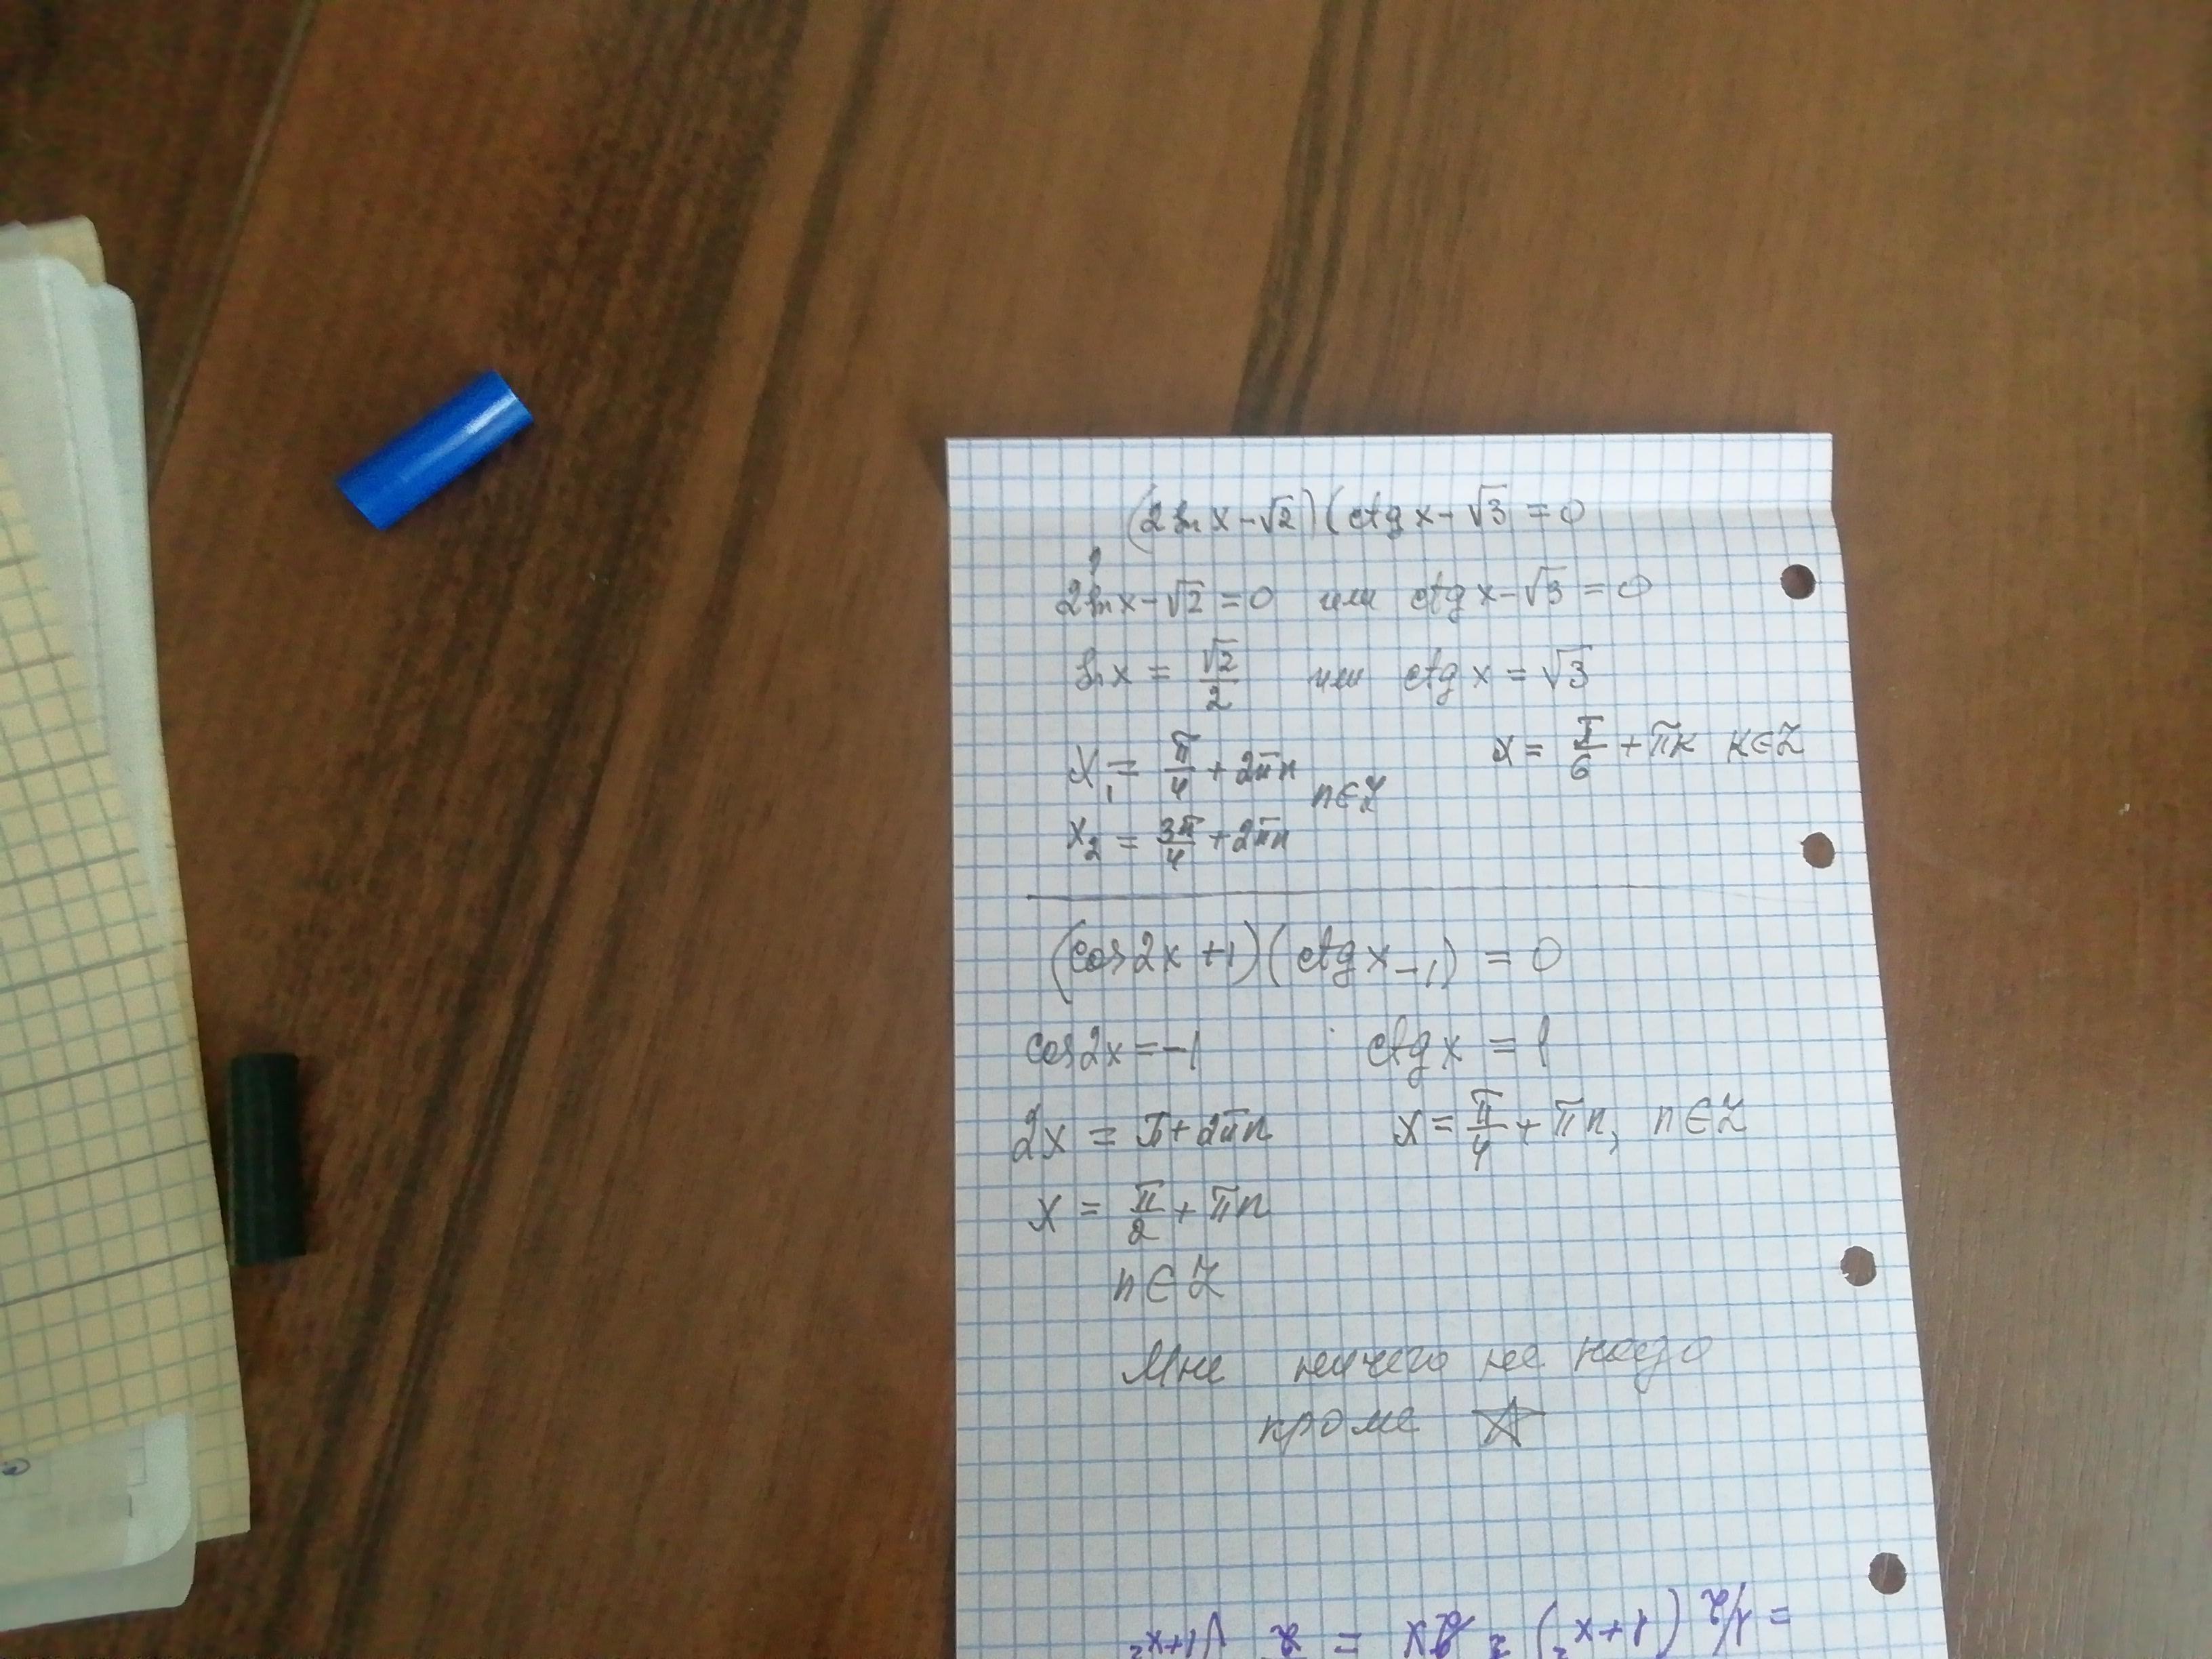 (2sin x - √2)(ctg x - √3 = 0
2sin x - √2 = 0 или ctg x - √3 = 0
sin x = √2/2 или ctg x = √3
x₁ = π/4 + 2πn x = π/6 + πk k∈Z
n∈Z
x₂ = 3π/4 + 2πn
(cos 2x + 1)(ctg x - 1) = 0
cos 2x = -1 ctg x = 1
2x = π + 2πn x = π/4 + πn, n∈Z
x = π/2 + πn
n∈Z
Мне ничего не надо
кроме ☆